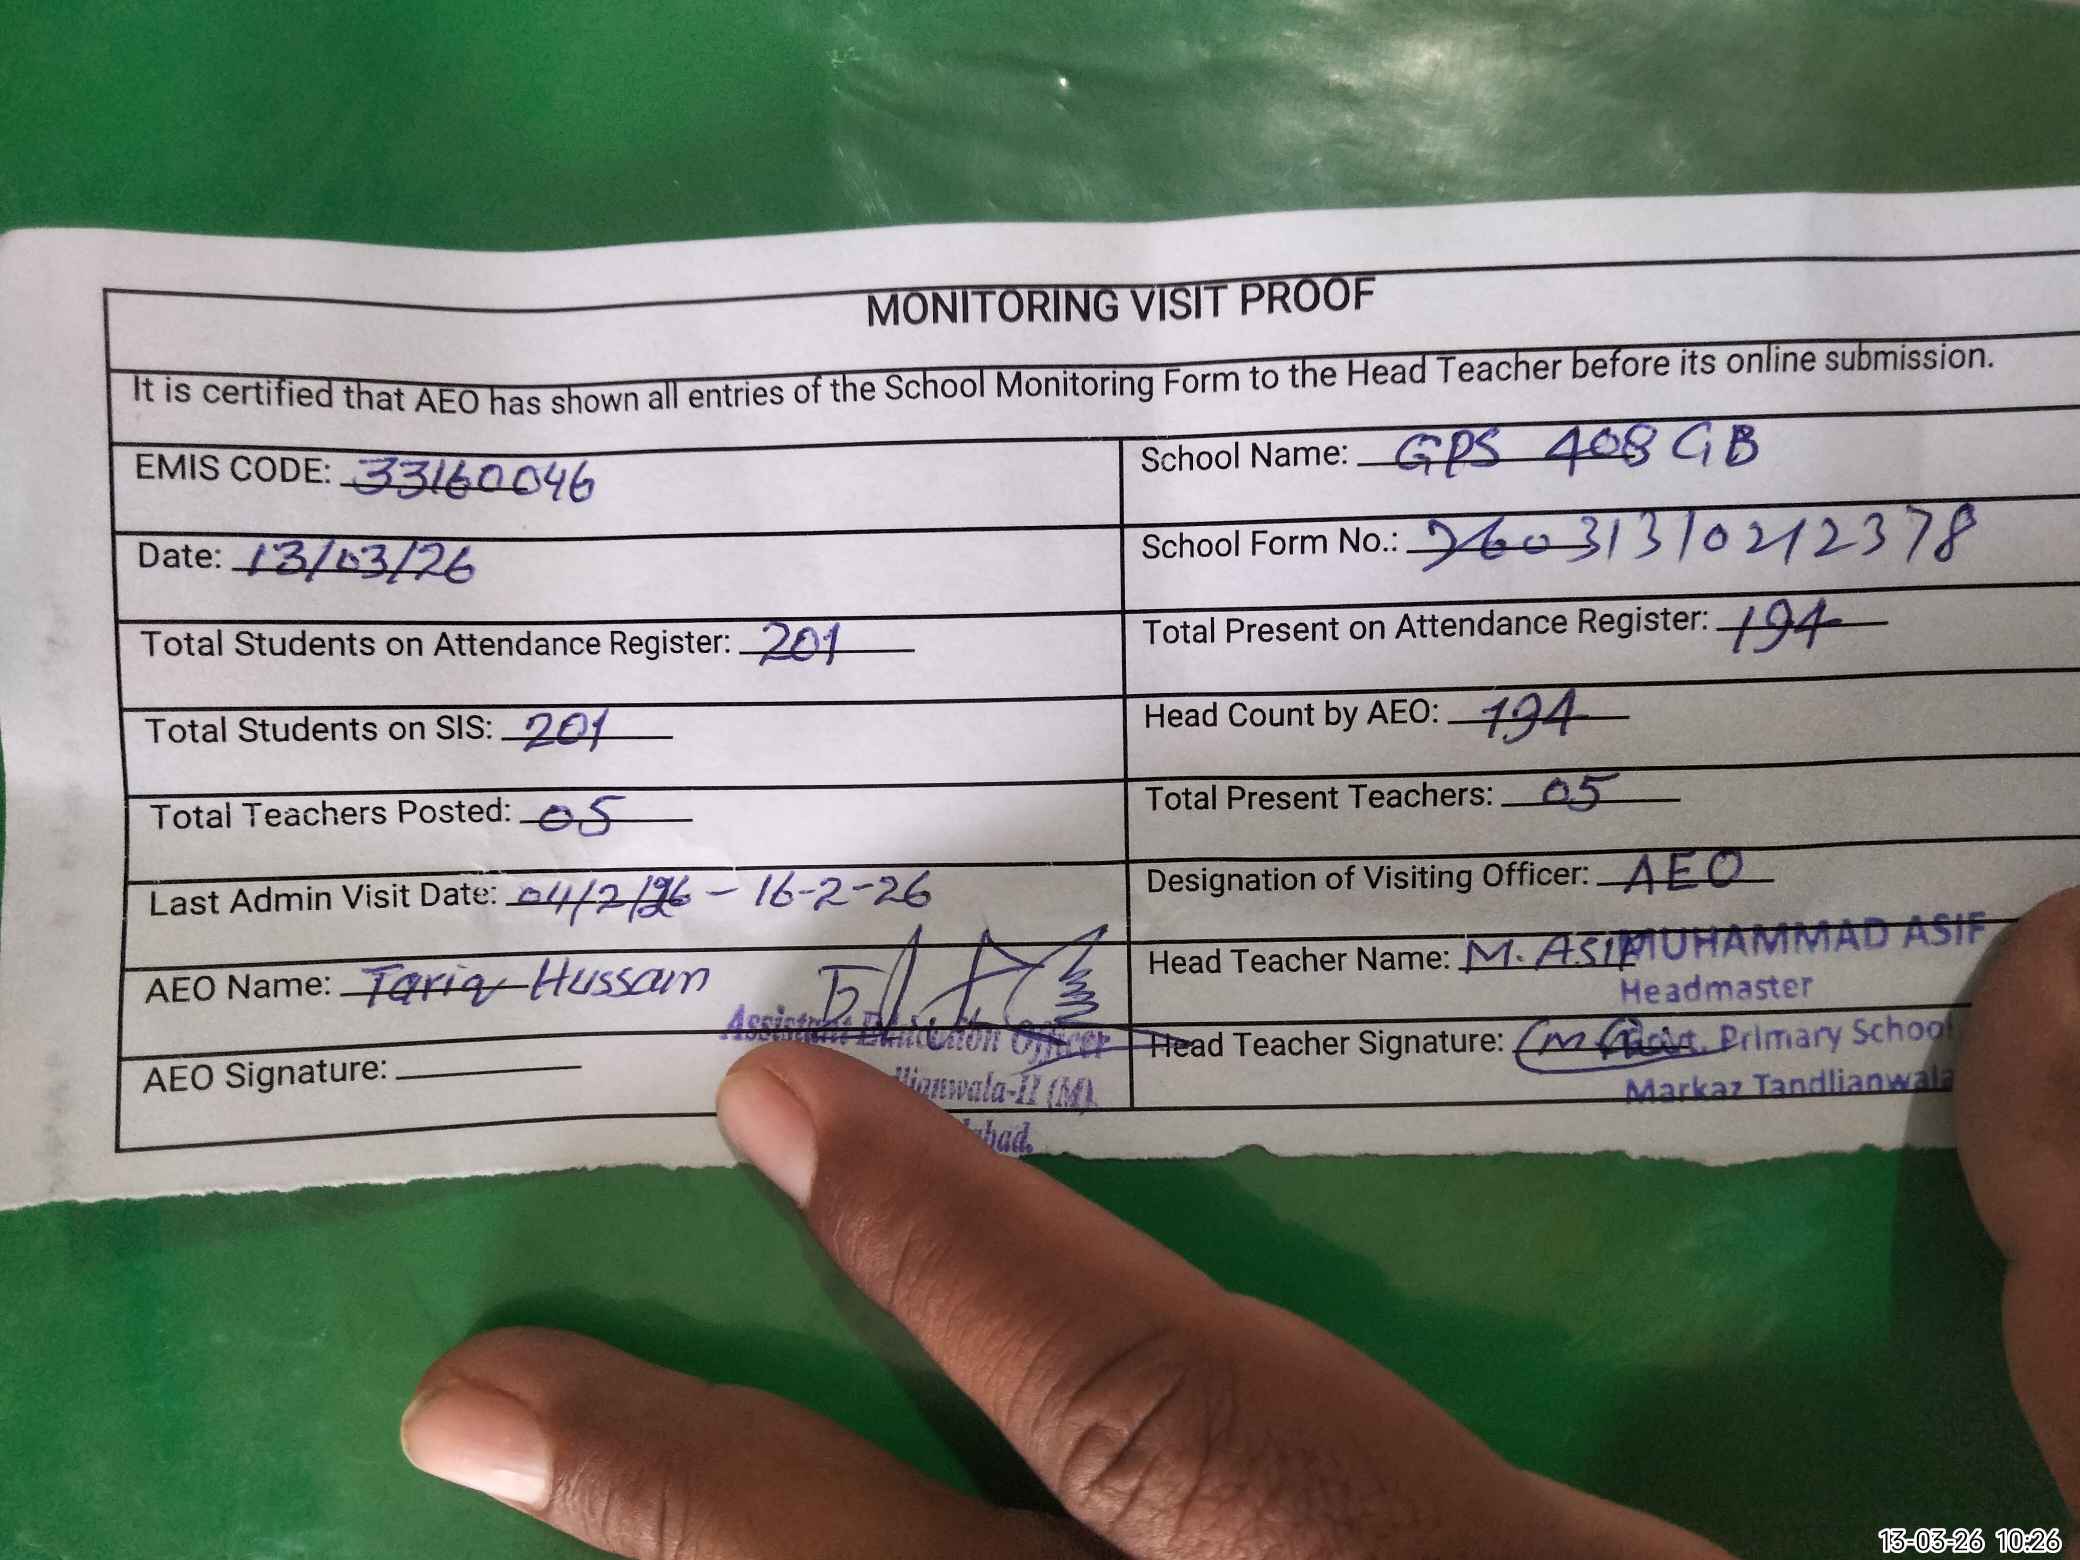 MONITORING VISIT PROOF
It is certified that AEO has shown all entries of the School Monitoring Form to the Head Teacher before its online submission.
EMIS CODE: 33160046
School Name: GPS 408 GB
Date: 13/03/26
School Form No.: 26031310212378
Total Students on Attendance Register: 201
Total Present on Attendance Register: 194
Total Students on SIS: 201
Head Count by AEO: 194
Total Teachers Posted: 05
Total Present Teachers: 05
Last Admin Visit Date: 04/2/26 - 16-2-26
Designation of Visiting Officer: AEO
AEO Name: Tariq Hussain
Head Teacher Name: M. ASIF
MUHAMMAD ASIF
Headmaster
AEO Signature:
Assistant Education Officer
(M).
Head Teacher Signature:
Govt. Primary School
Markaz Tandlianwala
13-03-26 10:26